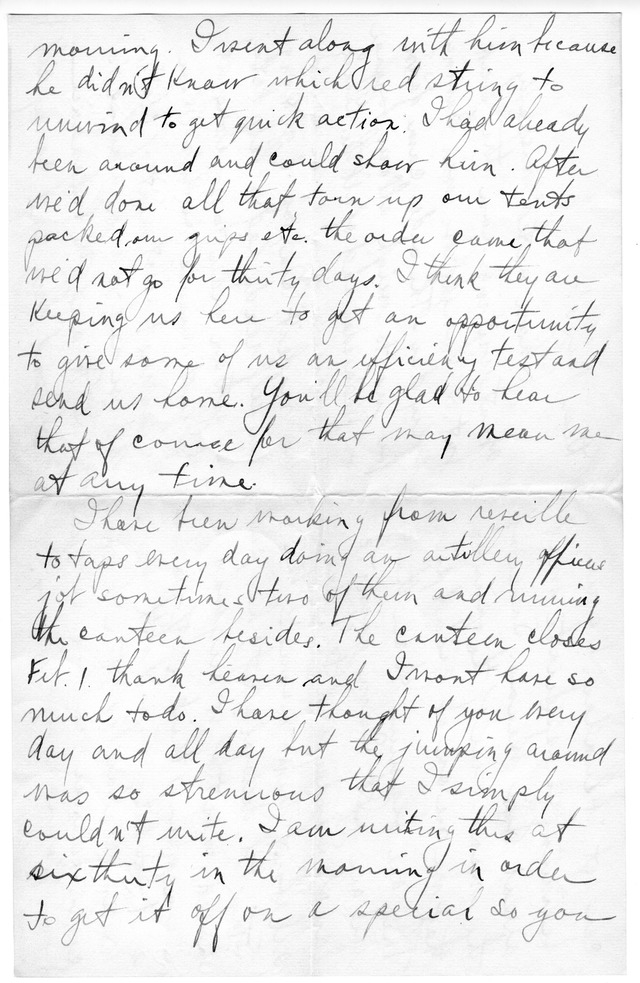 morning. I went along with him because
he didn't know which red string to
unwind to get quick action. I had already
been around and could show him. After
we'd done all that, torn up our tents
packed our grips etc. the order came that
we'd not go for thirty days. I think they are
keeping us here to get an opportunity
to give some of us an efficiency test and
send us home. You'll be glad to hear
that of course for that may mean me
at any time.
I have been working from reveille
to taps every day doing an artillery officers
job sometimes two of them and running
the canteen besides. The canteen closes
Feb. 1. thank heaven and I wont have so
much to do. I have thought of you every
day and all day but the jumping around
was so strenuous that I simply
couldn't write. I am writing this at
six thirty in the morning in order
to get it off on a special so you